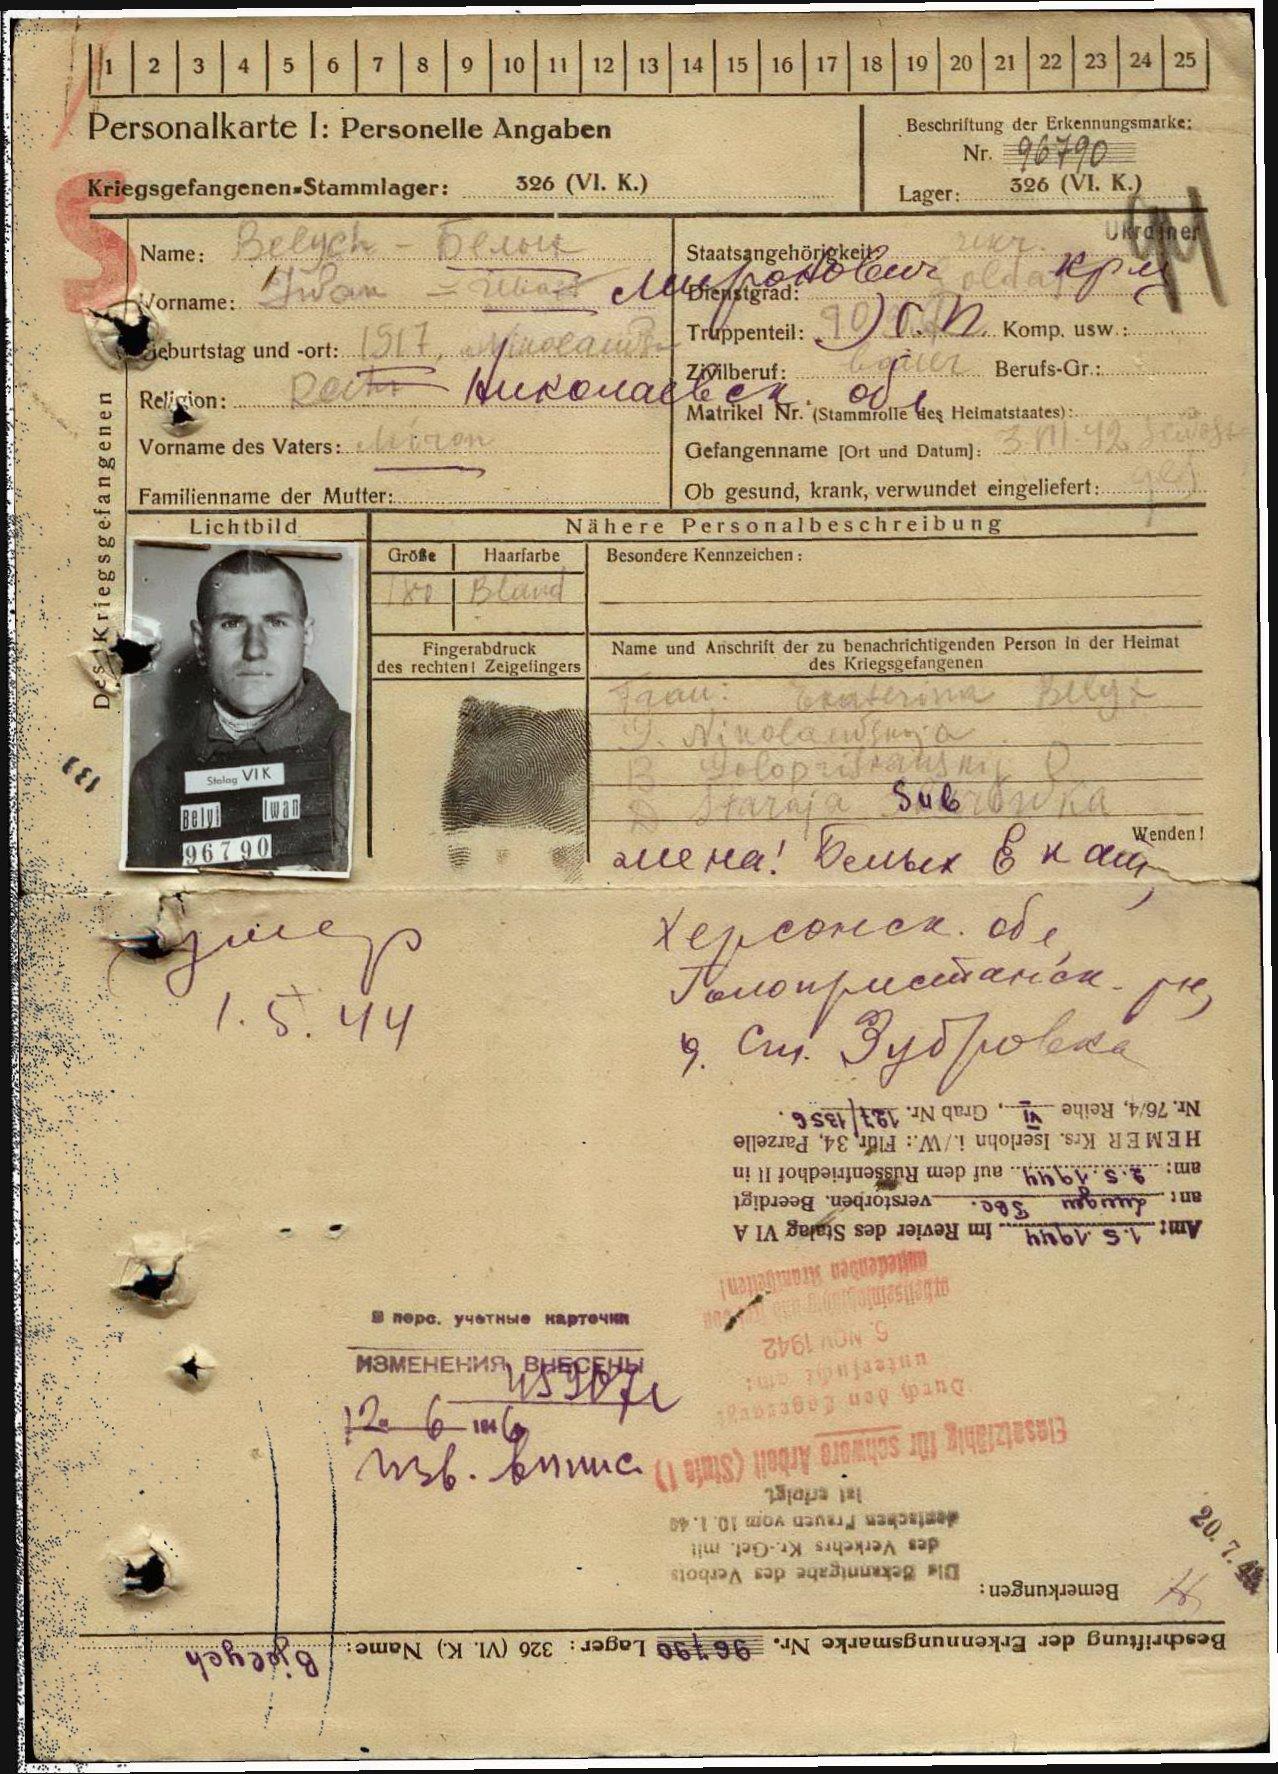 1 2 3 4 5 6 7 8 9 10 11 12 13 14 15 16 17 18 19 20 21 22 23 24 25
Personalkarte I: Personelle Angaben
Beschriftung der Erkennungsmarke:
Nr. 96790
Kriegsgefangenen-Stammlager: 326 (VI. K.)
Lager: 326 (VI. K.)
Des Kriegsgefangenen
Name: Belych - Белых
Vorname: Iwan - Иван Миронович
Geburtstag und -ort: 1917,
Religion: Николаевск. обл
Vorname des Vaters: Miron
Familienname der Mutter:
Staatsangehörigkeit: Ukrainer
Dienstgrad: Soldat
Truppenteil: Komp. usw.:
Zivilberuf: Bauer Berufs-Gr.:
Matrikel Nr. (Stammrolle des Heimatstaates):
Gefangenname [Ort und Datum]:
Ob gesund, krank, verwundet eingeliefert:
Lichtbild
Nähere Personalbeschreibung
Größe Haarfarbe
180 Bland
Besondere Kennzeichen:
Stalag VI K
Belyi Iwan
96790
133
Fingerabdruck
des rechten! Zeigefingers
Name und Anschrift der zu benachrichtigenden Person in der Heimat
des Kriegsgefangenen
Frau: Ekaterina Belyx
Nikolaewskaja
Staraja Subrowka
Wenden!
жена! Белых Екат
умер
1.5.44
Херсонск. обл
Голопристанск. рн,
д. Ст. Зубровка
Nr. 76/4, Reihe VI, Grab Nr. 127/1356.
HEMER Krs. Iserlohn i./W.: Flur, 34, Parzelle
am: 2.5.1944 auf dem Russenfriedhof II in
an: Lungen Tbc. verstorben. Beerdigt
Am: 1.5.1944 im Revier des Stalag VI A
5. NOV 1942
untersucht am:
Durch den Lagerarzt
Einsatzfähig für schwere Arbeit (Stufe 1)
В перс. учетные карточки
ИЗМЕНЕНИЯ ВНЕСЕНЫ
12 6 1946
изв. выпис.
ist erfolgt
deutschen Frauen vom 10.1.40
des Verkehrs Kr.-Gef. mit
Die Bekanntgabe des Verbots
Bemerkungen:
20.7.
Beschriftung der Erkennungsmarke Nr. 96790 Lager: 326 (VI. K.) Name: Bjelych